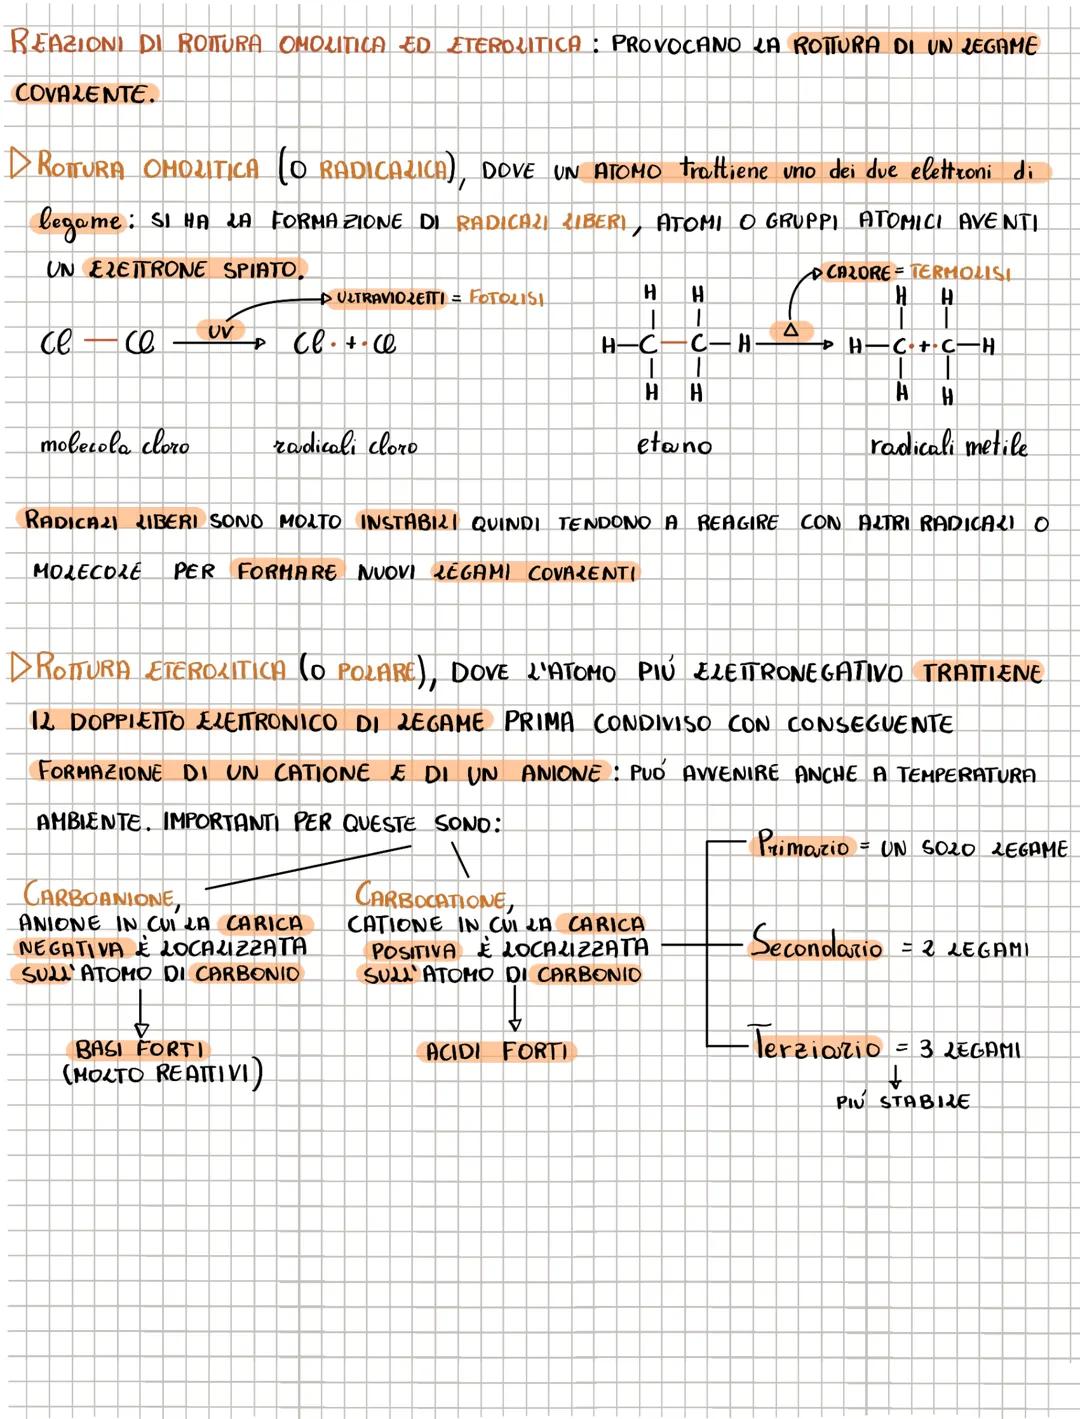 REAZIONI DI ROTTURA OMOLITICA ED ETEROLITICA : PROVOCANO LA ROTTURA DI UN LEGAME
COVALENTE.
▷ ROTTURA OMOLITICA (O RADICALICA), DOVE UN ATOMO trattiene uno dei due elettroni di
legame: SI HA LA FORMAZIONE DI RADICALI LIBERI, ATOMI O GRUPPI ATOMICI AVENTI
UN ELETTRONE SPIATO.
CALORE = TERMOLISI
ULTRAVIOLETTI = FOTOLISI
H H H H
Cl — Cl UV Cl· + ·Cl H—C—C—H Δ H—C· + ·C—H
H H H H
molecola cloro radicali cloro etano radicali metile
RADICALI LIBERI SONO MOLTO INSTABILI QUINDI TENDONO A REAGIRE CON ALTRI RADICALI O
MOLECOLE PER FORMARE NUOVI LEGAMI COVALENTI
▷ ROTTURA ETEROLITICA (O POLARE), DOVE L'ATOMO PIÚ ELETTRONEGATIVO TRATTIENE
IL DOPPIETTO ELETTRONICO DI LEGAME PRIMA CONDIVISO CON CONSEGUENTE
FORMAZIONE DI UN CATIONE E DI UN ANIONE : PUÓ AVVENIRE ANCHE A TEMPERATURA
AMBIENTE. IMPORTANTI PER QUESTE SONO:
CARBOANIONE,
ANIONE IN CUI LA CARICA
NEGATIVA È LOCALIZZATA
SULL'ATOMO DI CARBONIO
BASI FORTI
(MOLTO REATTIVI)
CARBOCATIONE,
CATIONE IN CUI LA CARICA
POSITIVA È LOCALIZZATA
SULL'ATOMO DI CARBONIO
ACIDI FORTI
Primario = UN SOLO LEGAME
Secondario = 2 LEGAMI
Terziario = 3 LEGAMI
PIÚ STABILE